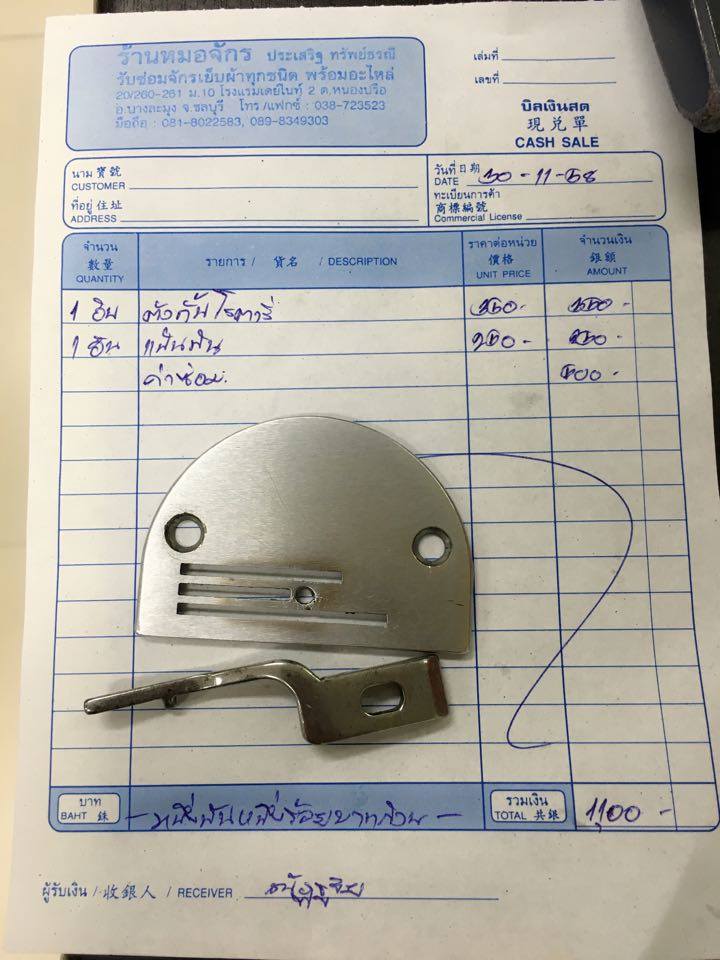 ร้านหมอจักร ประเสริฐ ทรัพย์ธรณี
รับซ่อมจักรเย็บผ้าทุกชนิด พร้อมอะไหล่
20/260-261 ม.10 โรงแรมเดย์ไนท์ 2 ต.หนองปรือ
อ.บางละมุง จ.ชลบุรี โทร/แฟกซ์ : 038-723523
มือถือ : 081-8022583, 089-8349303
เล่มที่
เลขที่
บิลเงินสด
現兌單
CASH SALE
นาม寶號
CUSTOMER
ที่อยู่住址
ADDRESS
วันที่日期
DATE 30-11-58
ทะเบียนการค้า
商標編號
Commercial License
จำนวน
數量
QUANTITY
รายการ / 貨名 / DESCRIPTION
ราคาต่อหน่วย
價格
UNIT PRICE
จำนวนเงิน
銀額
AMOUNT
1 อัน โรตารี่ 350.- 350-
1 อัน แป้นฟัน 250- 250-
ค่าซ่อม. 500-
บาท
BAHT 銖
-หนึ่งพันหนึ่งร้อยบาทถ้วน-
รวมเงิน
TOTAL 共銀
1,100 -
ผู้รับเงิน / 收銀人 / RECEIVER